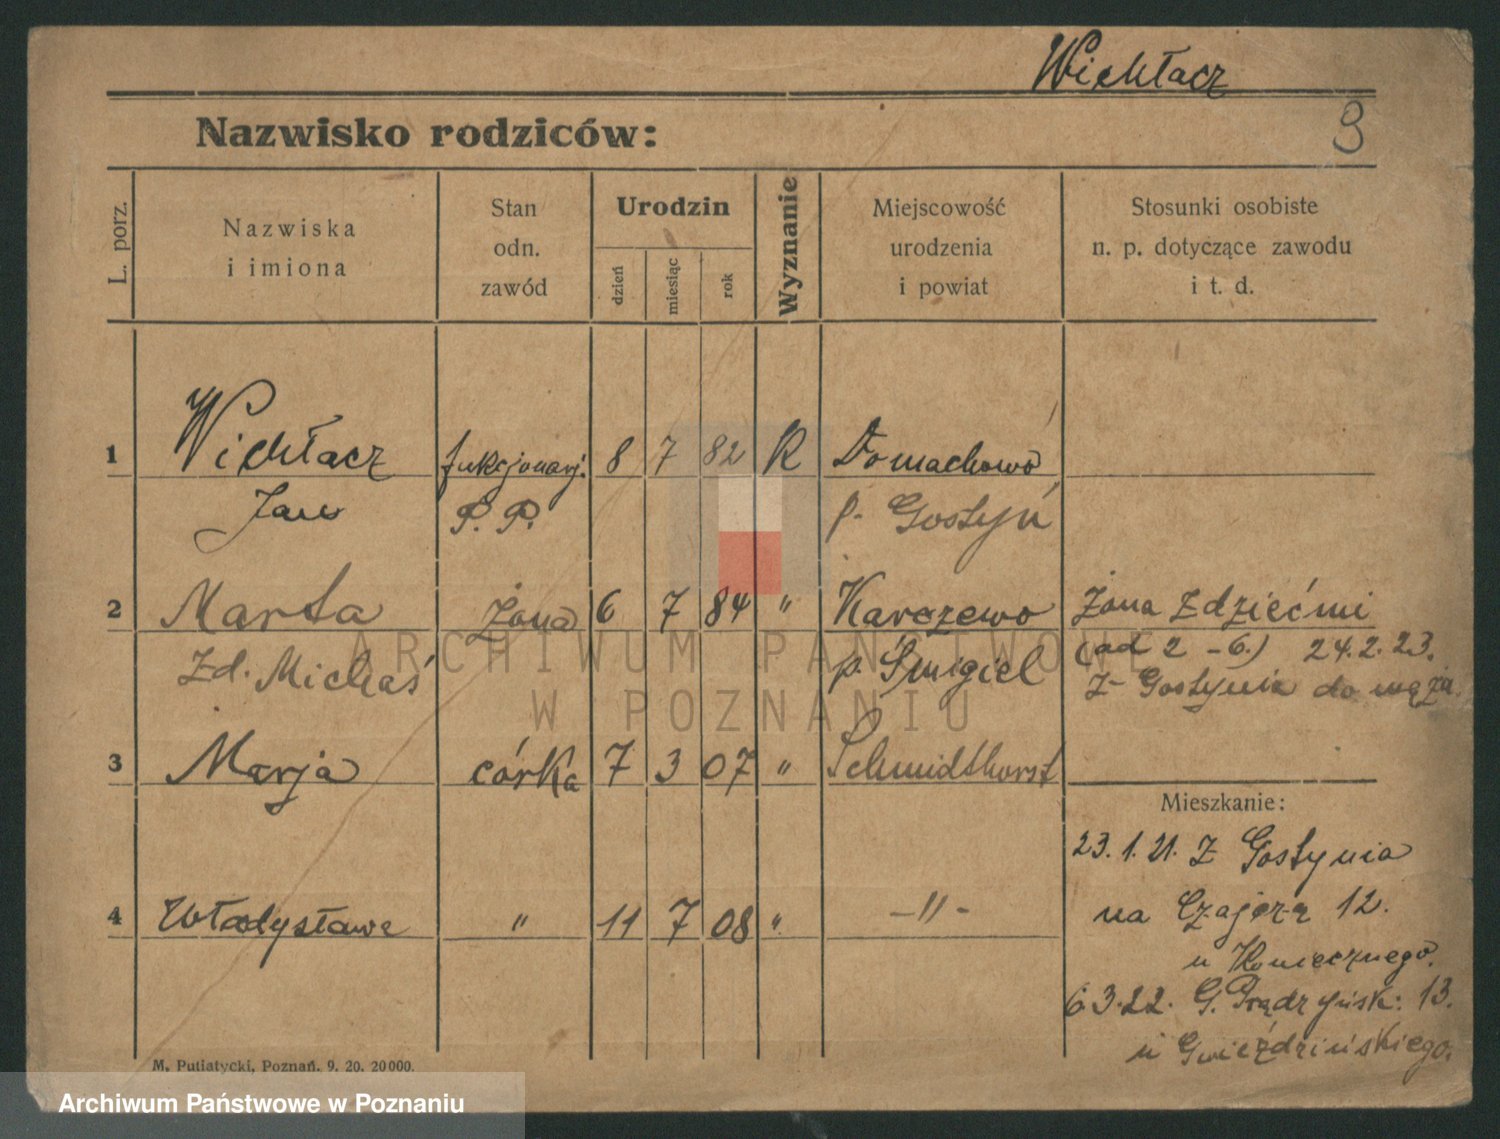 Wichłacz
9
Nazwisko rodziców:
L. porz.
Nazwiska
i imiona
Stan
odn.
zawód
Urodzin
dzień
miesiąc
rok
Wyznanie
Miejscowość
urodzenia
i powiat
Stosunki osobiste
n. p. dotyczące zawodu
i t. d.
1 Wichłacz funkcjonarj. 8 7 82 R Domachowo
Jan P. P. p. Gostyń
2 Marta żona 6 7 84 " Karczewo żona z dziećmi
zd. Michaś p. Śmigiel (ad 2 - 6.) 24.2.23.
z Gostynia do męża
3 Marja córka 7 3 07 " Schmidthorst
Mieszkanie:
23.1.21. z Gostynia
4 Władysława " 11 7 08 " -"- na Czajcza 12.
u Koniecznego.
6.3.22. G. Prądzyńsk. 13.
u Gwieździńskiego.
M. Putiatycki, Poznań. 9. 20. 20000.
ARCHIWUM PAŃSTWOWE
W POZNANIU
Archiwum Państwowe w Poznaniu